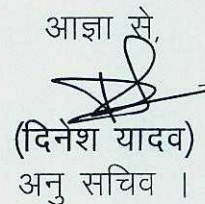 आज्ञा से,
(दिनेश यादव)
अनु सचिव ।